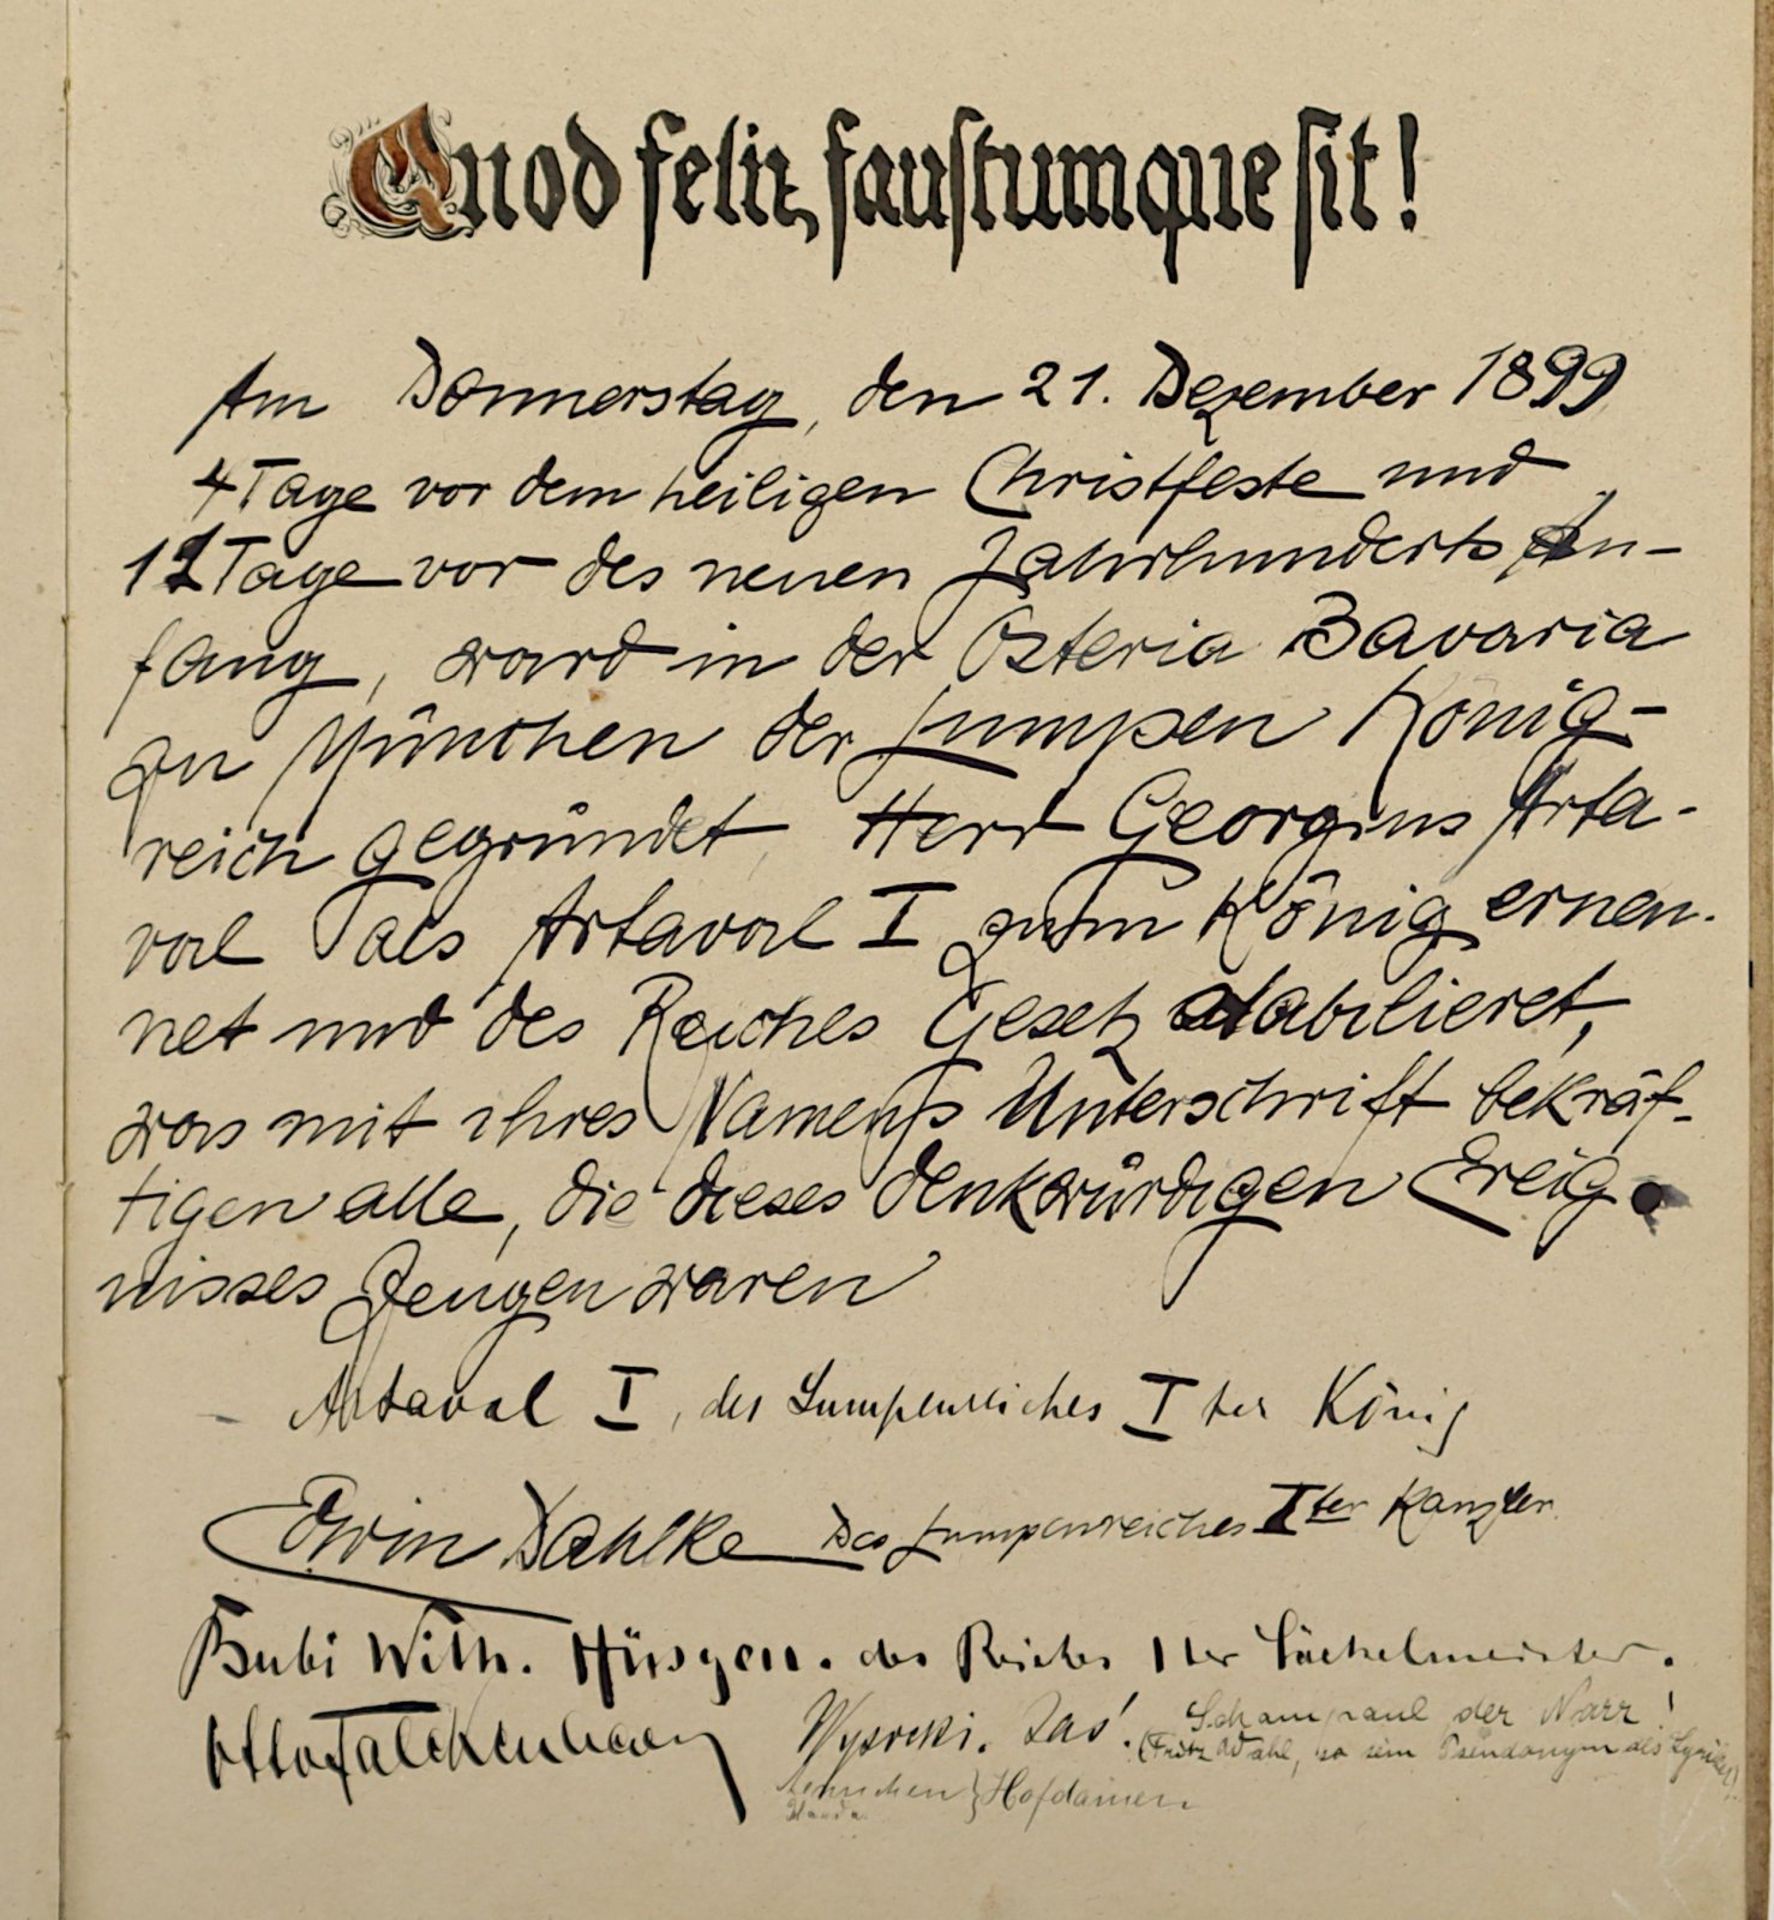 Quod felix, faustumque sit!
Am Donnerstag, den 21. Dezember 1899
4 Tage vor dem heiligen Christfeste und
11 Tage vor des neuen Jahrhunderts An-
fang, ward in der Osteria Bavaria
zu München der Lumpen König-
reich gegründet, Herr Georgius Arta-
val als Artaval I zum König ernen-
net und des Reiches Gesetz stabilieret,
was mit ihres Namens Unterschrift bekräf-
tigen alle, die dieses denkwürdigen Ereig-
nisses Zeugen waren
Artaval I, des Lumpenreiches I ter König
Erwin Dahlke Des Lumpenreiches I ter Kanzler
Bubi Wilh. Hüsgen. des Reiches 1 ter Säckelmeister.
Otto Falckenberg Wysocki. Schampaul der Narr!
(Fritz Wahl, so sein Pseudonym als Lyriker)
Hofdamen